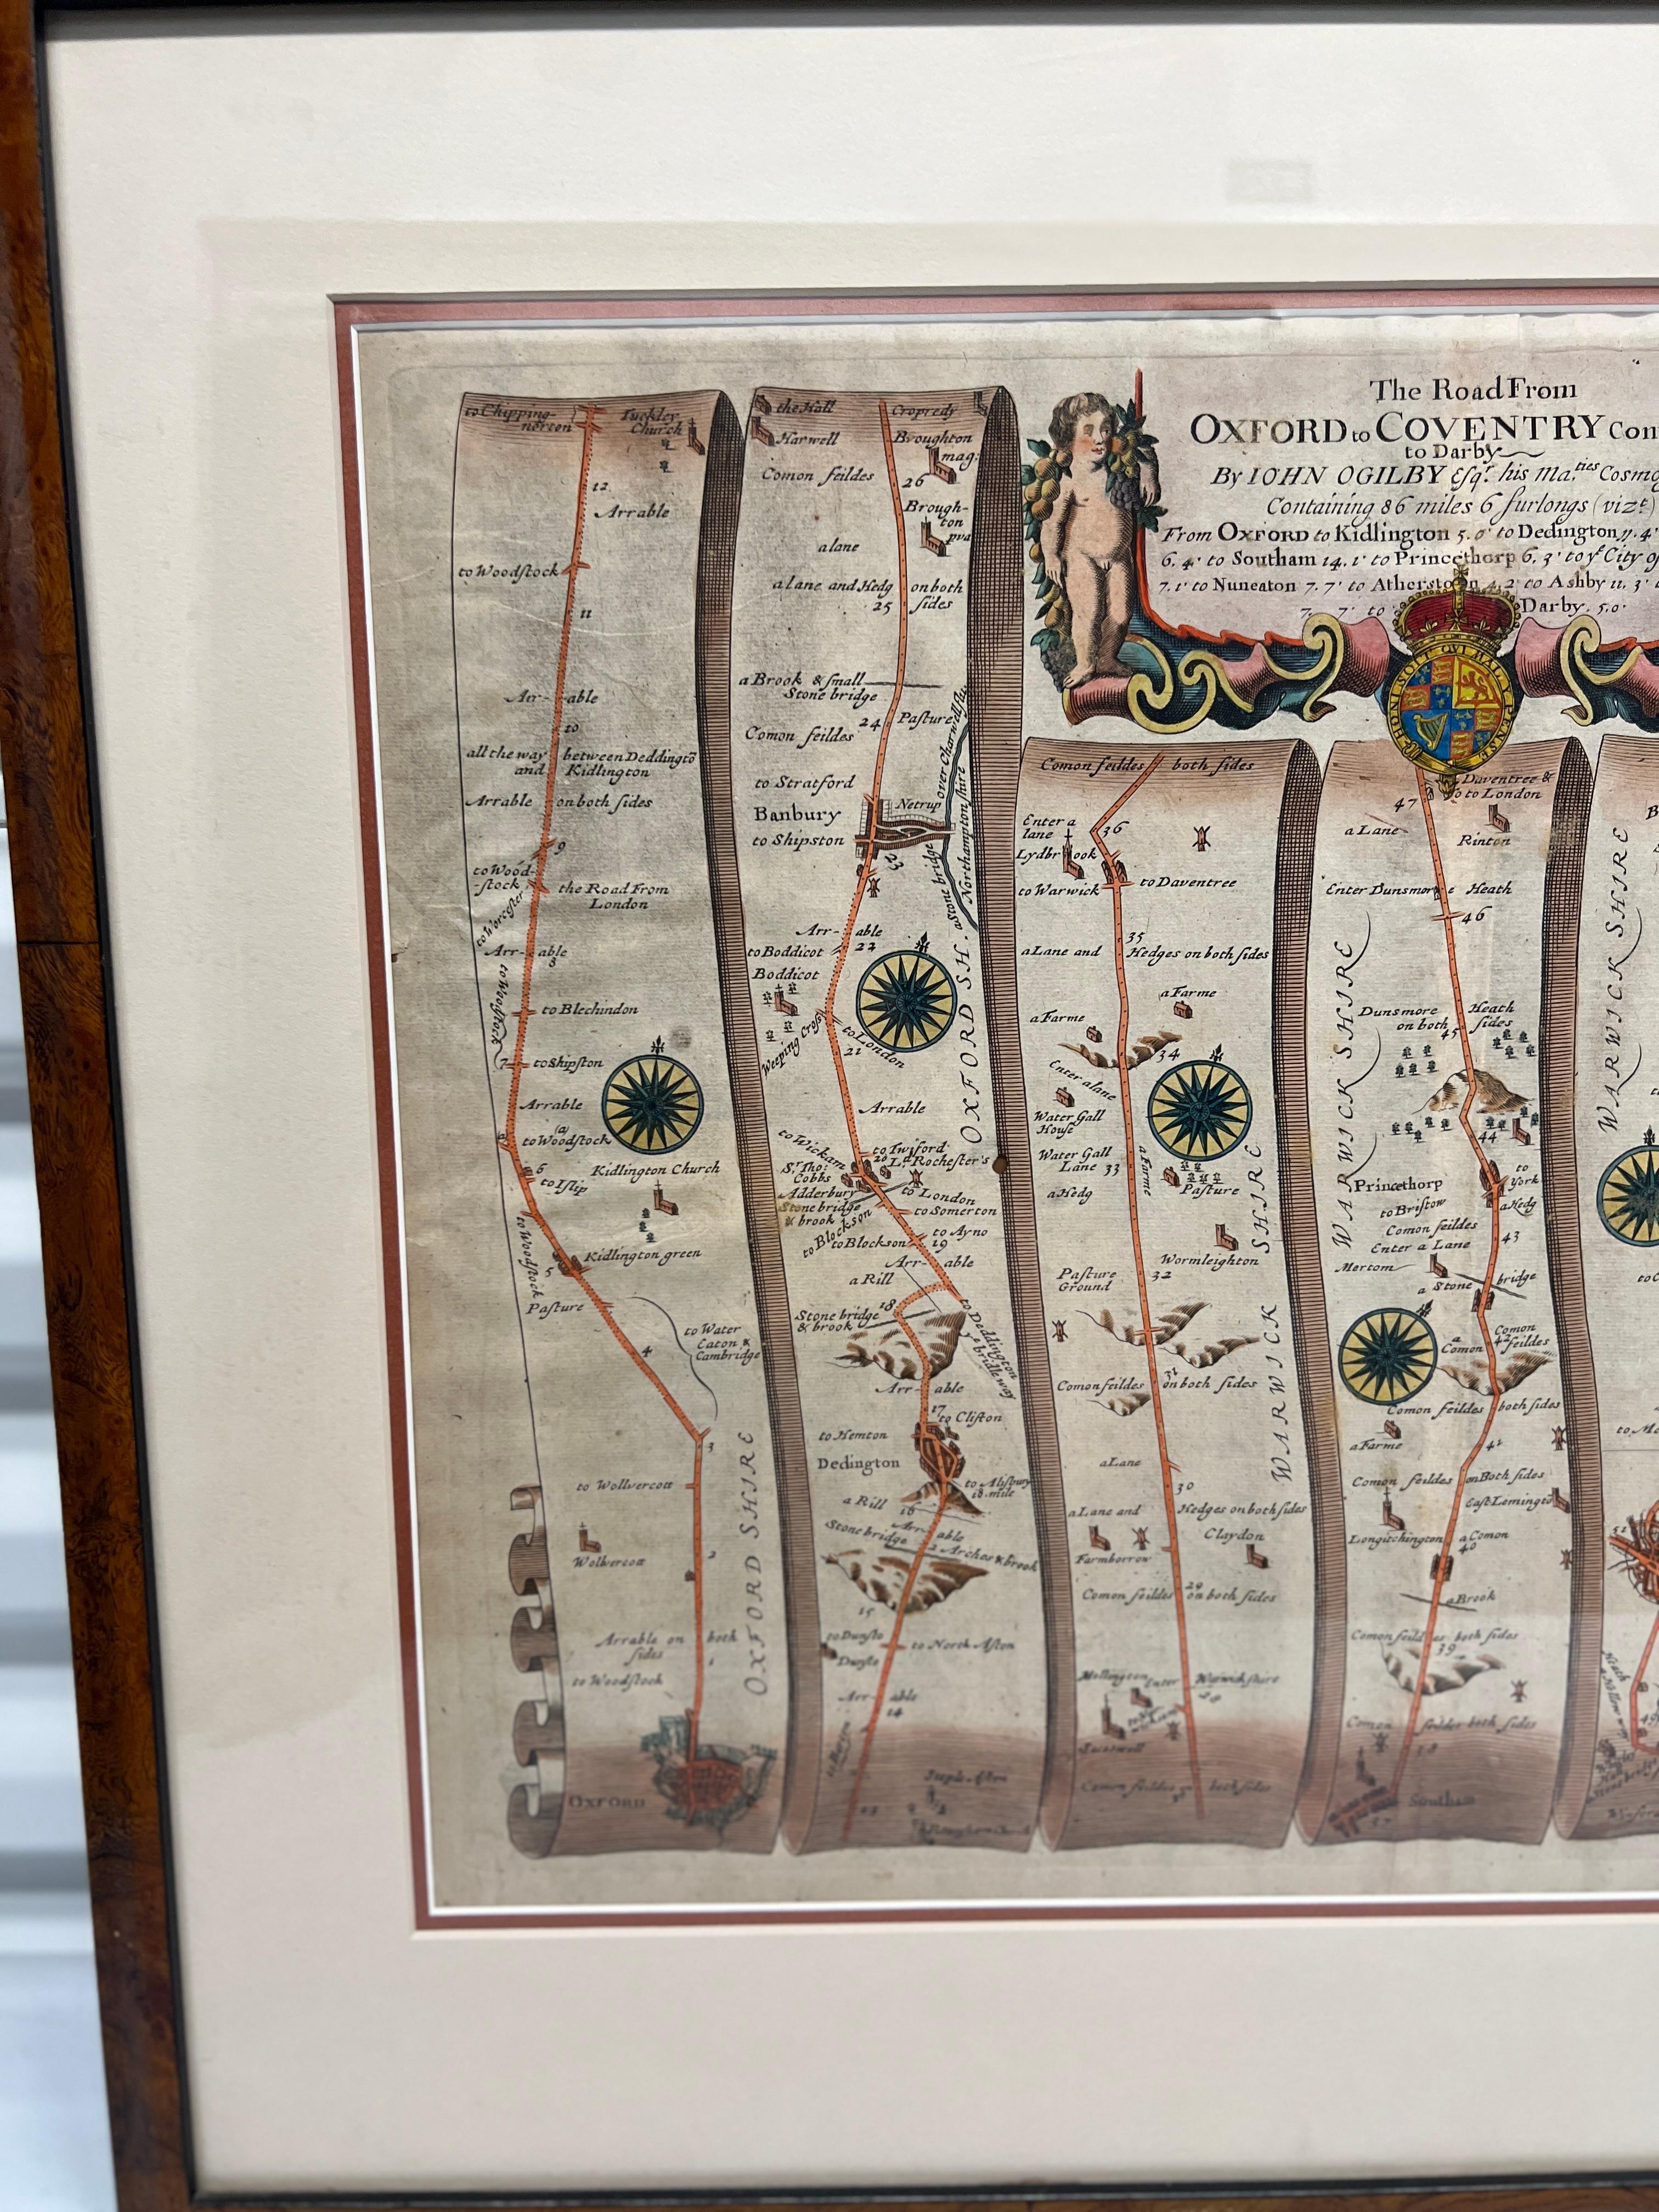 The Road From
OXFORD to COVENTRY Con
to Darby
By IOHN OGILBY Esqr. his Ma.ties Cosmo
Containing 86 miles 6 furlongs (vizt)
From OXFORD to Kidlington 5.0' to Dedington 11.4'
6.4' to Southam 14.1' to Princethorp 6.3' to ye City of
7.1' to Nuneaton 7.7' to Atherston 4.2' to Ashby 11.3'
7. 7' to Darby. 5.0'
HONI SOIT QVI MAL Y PENSE
to Chipping-
norton
Tuckley
Church
12
Arrable
to Woodstock
11
Arr- able
10
all the way between Deddingtō
and Kidlington
Arrable on both sides
9
to Wood-
-stock
the Road From
London
to Worcester
Arr- able
8
to Woodstock
to Blechindon
7 to Shipston
Arrable
to Woodstock
6
to Islip
Kidlington Church
to Woodstock
Kidlington green
5
Pasture
to Water
Eaton &
Cambridge
4
3
to Wollvercott
2
Wolvercott
Arrable on both
sides
1
to Woodstock
OXFORD
OXFORD SHIRE
the Hall
Cropredy
Harwell
Broughton
mag:
Comon feildes
26
Brough-
ton
pva
a lane
a lane and Hedg on both
25 sides
a Brook & small
Stone bridge
24
Pasture
Comon feildes
to Stratford
Banbury
Netrup
to Shipston
23
a Stone bridge over Charwell flu
Northampton shire
Arr- able
22
to Boddicot
Boddicot
Weeping Cross
to London
21
Arrable
to Wickam
to Twiford
20
Ld. Rochester's
Sr. Tho:
Cobbs
Adderbury
to London
Stone bridge
& brook
to Somerton
to Blockson
to Ayno
to Blockson
19
Arr- able
a Rill
18
Stone bridge
& brook
to Deddington
bridleway
Arr- able
17
to Clifton
to Hemton
Dedington
to Alisbury
18 mile
a Rill
16
Arr- able
Stone bridge 2 Arches & brook
15
to Dunsto
to North Aston
Dunsto
Arr- able
14
13
OXFORD SH.
Comon feildes both sides
Enter a
lane
36
Lydbrook
to Warwick
to Daventree
35
a Lane and Hedges on both sides
a Farme
a Farme
34
Enter a lane
Water Gall
House
Water Gall
Lane 33
a Farme
a Hedg
Pasture
Wormleighton
Pasture
Ground
32
31
Comon feildes on both sides
a Lane
30
a Lane and Hedges on both sides
Claydon
Farmborrow
29
Comon feildes on both sides
Mollington Enter Warwick shire
28
Comon feildes both sides
WARWICK SHIRE
47
Daventree &
to London
a Lane
Rinton
Enter Dunsmore Heath
46
Dunsmore Heath
on both sides
45
44
Princethorp
to
York
to Bristow
a Hedg
Comon feildes
43
Enter a Lane
Mertom
a Stone bridge
a
Comon
Comon
42 feildes
Comon feildes both sides
a Farme
41
Comon feildes on Both sides
East Lemingto
Longitchington
a Comon
40
a Brook
Comon feildes both sides
39
Comon feildes both sides
38
Southam
WARWICK SHIRE
WARWICK SHIRE